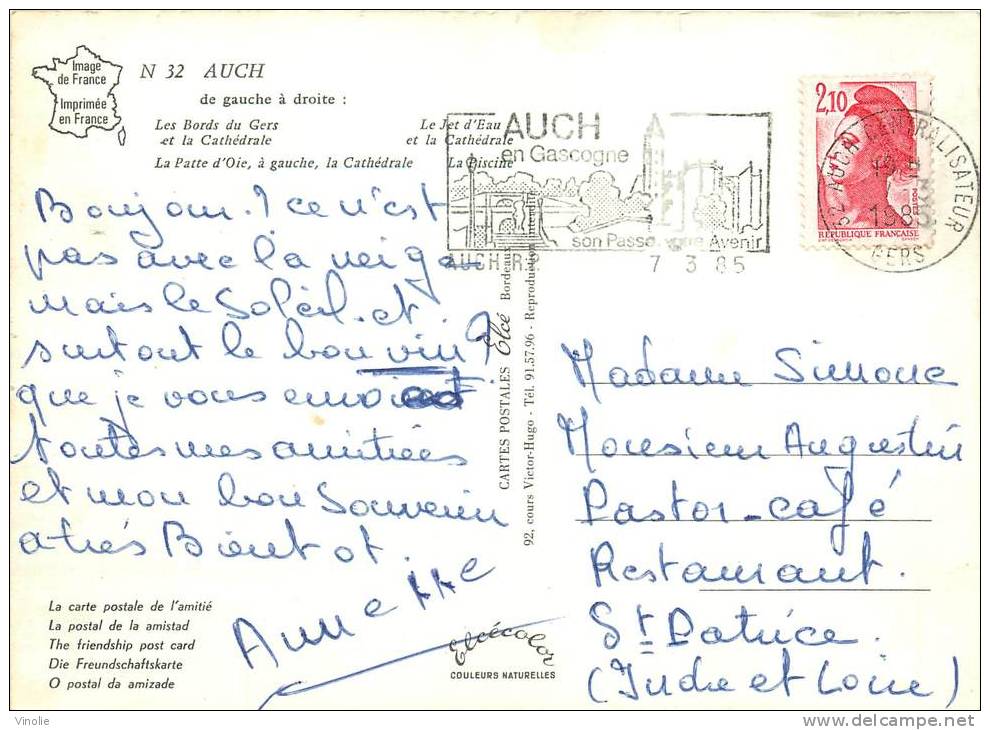 Image
de France
Imprimée
en France
N 32 AUCH
de gauche à droite :
Les Bords du Gers
et la Cathédrale
Le Jet d'Eau
et la Cathédrale
La Patte d'Oie, à gauche, la Cathédrale
La Piscine
AUCH
en Gascogne
son Passé votre Avenir
AUCH R.P.
7 3 85
2,10
RÉPUBLIQUE FRANÇAISE
32 AUCH CENTRALISATEUR
7 3
1985
GERS
Bonjour. ! ce n'est
pas avec la neige
mais le Soleil. et
surtout le bon vin ?
que je vous envoi
toutes mes amitiées
et mon bon Souvenir
a très Bientot.
Annette
CARTES POSTALES Elcé Bordeaux
92, cours Victor-Hugo - Tél. 91.57.96 - Reproduction interdite
Madame Simone
Monsieur Augustin
Pastor - café
Restaurant.
St Patrice.
(Indre et Loire)
La carte postale de l'amitié
La postal de la amistad
The friendship post card
Die Freundschaftskarte
O postal da amizade
Elcécolor
COULEURS NATURELLES
Vinolie
delcampe.net